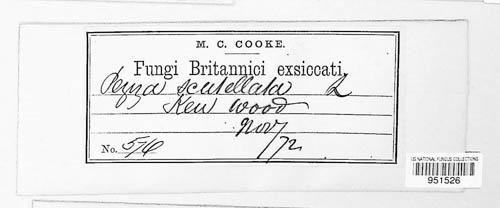 M. C. COOKE.
Fungi Britannici exsiccati,
Peziza scutellata L
Ken wood
Nov/72
No. 576
US NATIONAL FUNGUS COLLECTIONS
951526